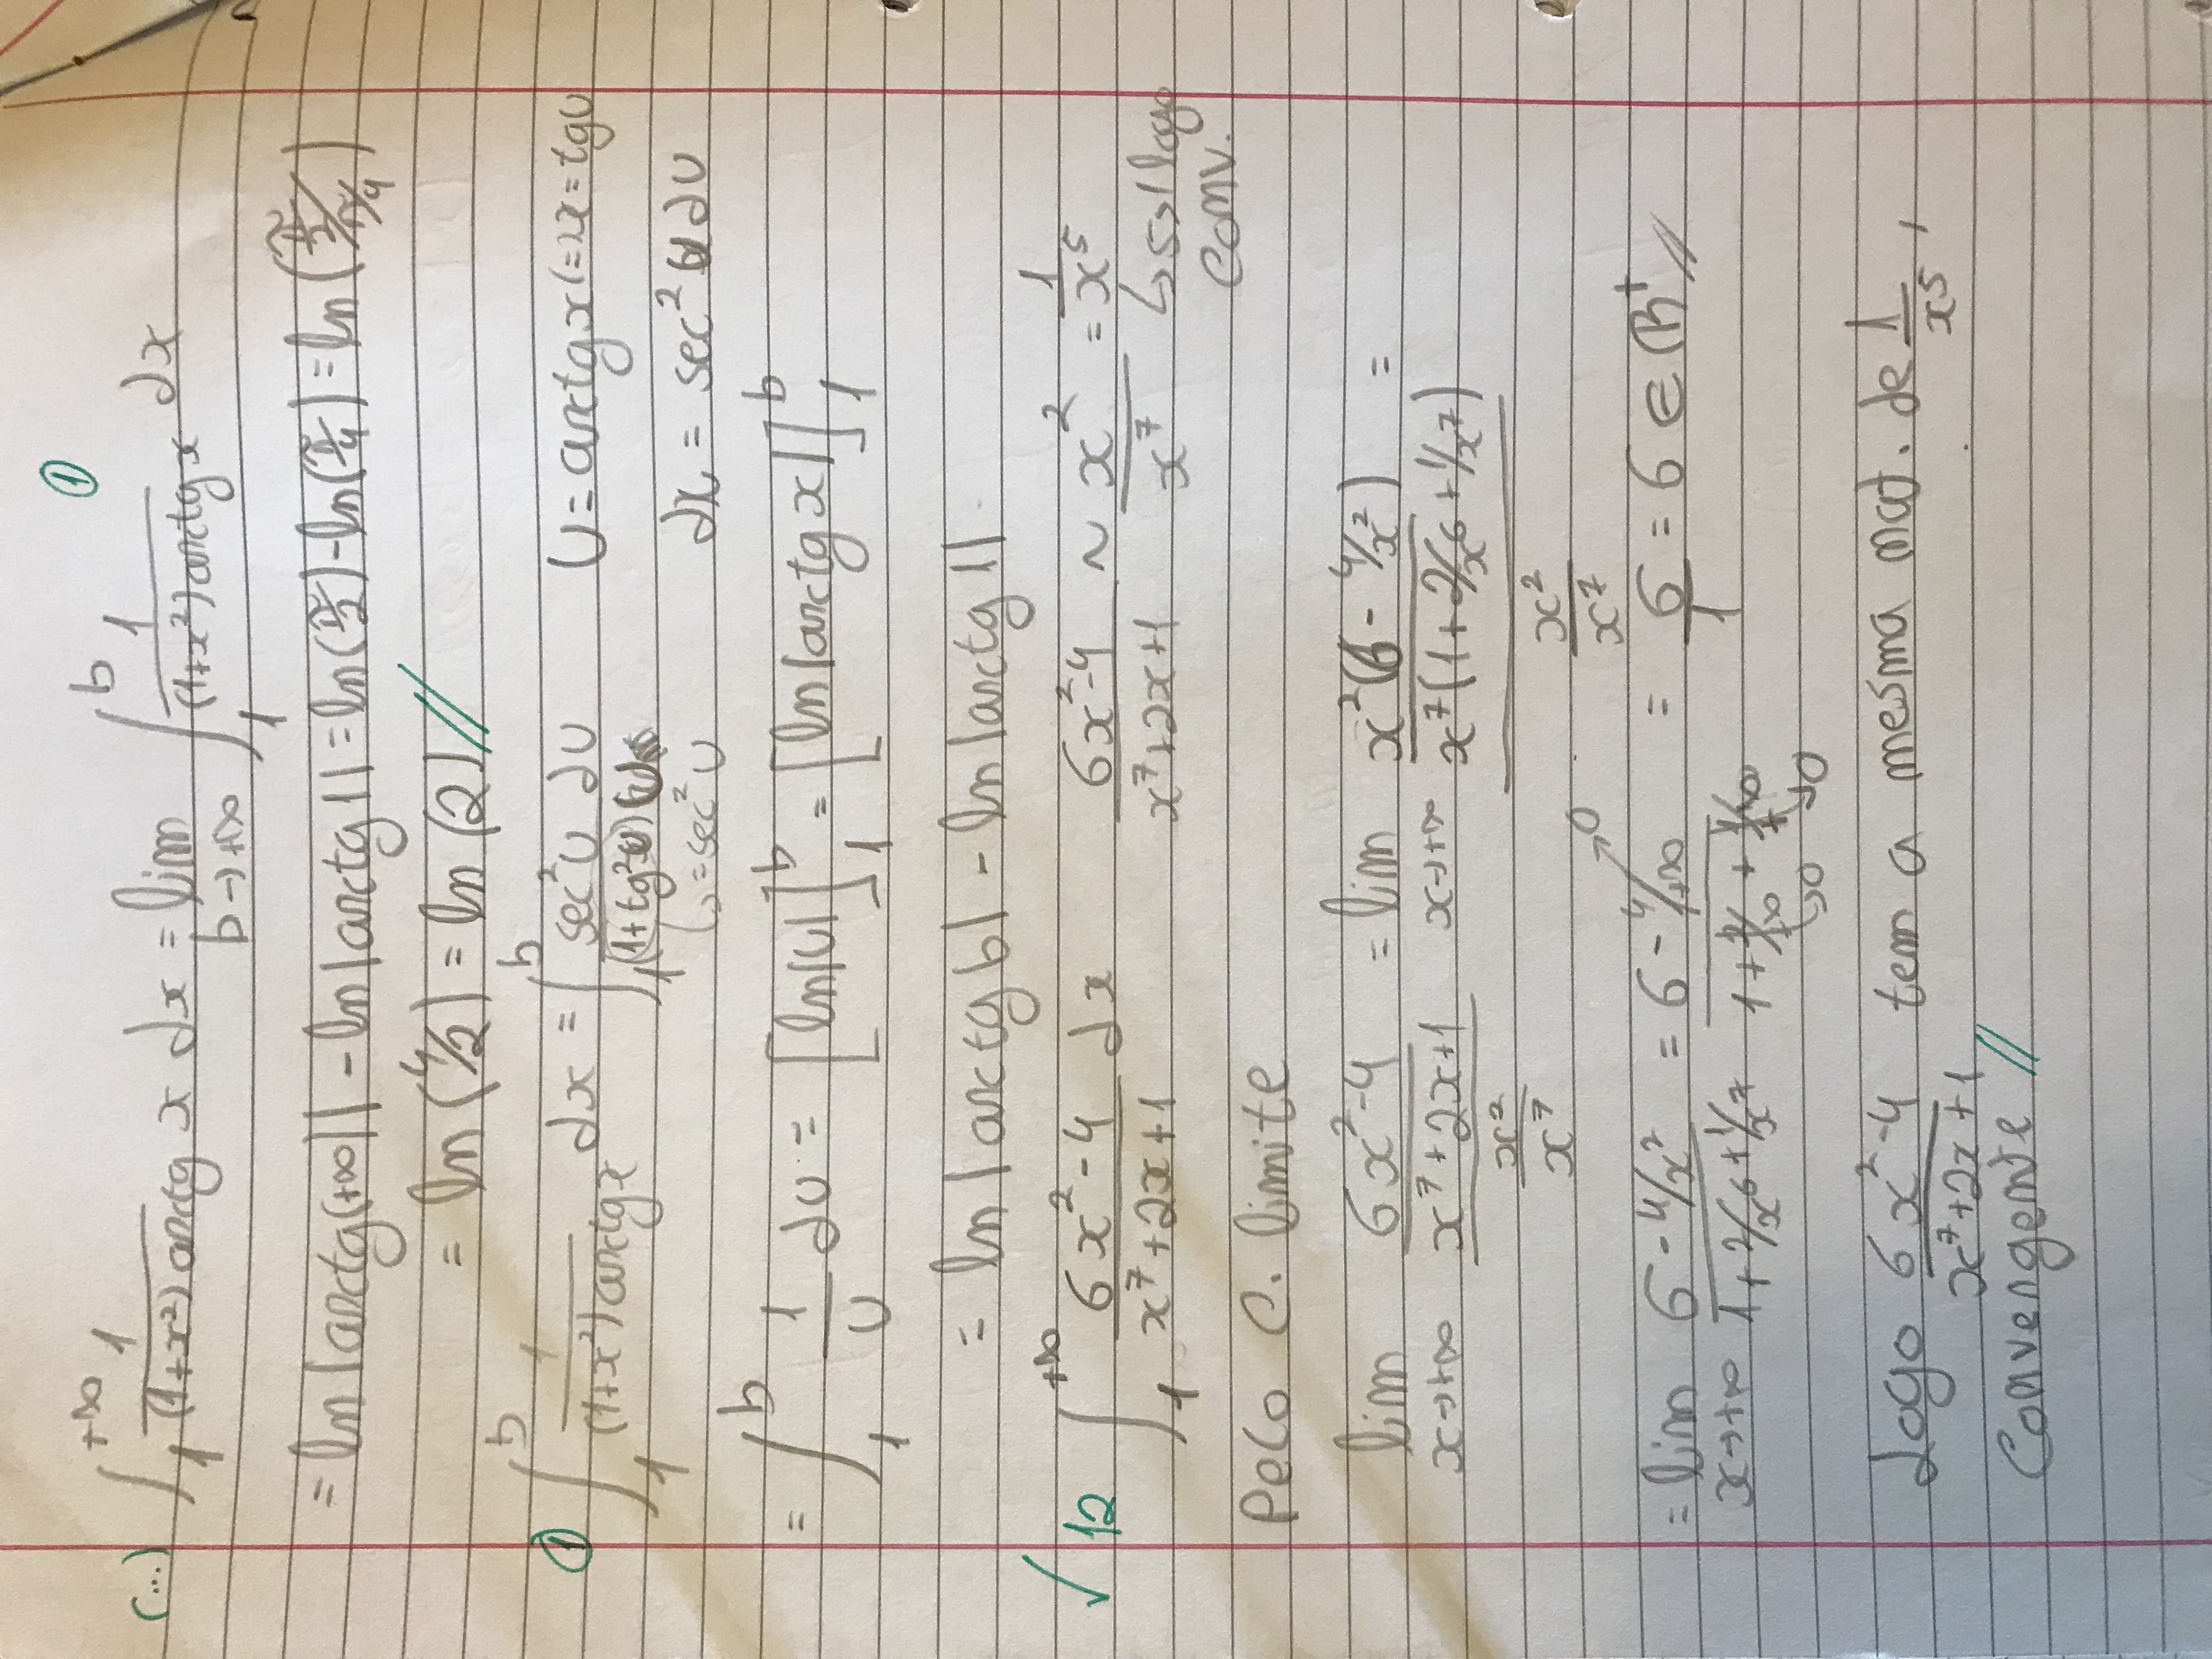 ①
(...) ∫₁^{+∞} 1/((1+x²) arctg x) dx = lim_{b→+∞} ∫₁^b 1/((1+x²) arctg x) dx
= ln|arctg(+∞)| - ln|arctg 1| = ln(π/2) - ln(π/4) = ln((π/2)/(π/4))
= ln(4/2) = ln(2)//
① ∫₁^b 1/((1+x²) arctg x) dx = ∫₁^b sec²U dU/((1+tg²U) U) U = arctg x (=) x = tg U
↳ = sec²U dx = sec²U dU
= ∫₁^b 1/U dU = [ln|U|]₁^b = [ln|arctg x|]₁^b
= ln|arctg b| - ln|arctg 1|
✓ 12 ∫₁^{+∞} (6x²-4)/(x⁷+2x+1) dx (6x²-4)/(x⁷+2x+1) ~ x²/x⁷ = 1/x⁵
↳ 5>1 logo
conv.
Pelo C. limite
lim_{x→+∞} ((6x²-4)/(x⁷+2x+1))/(x²/x⁷) = lim_{x→+∞} (x²(6-4/x²)/(x⁷(1+2/x⁶+1/x⁷)))/(x²/x⁷) =
= lim_{x→+∞} (6-4/x²)/(1+2/x⁶+1/x⁷) = (6-4/+∞ →0)/(1+2/+∞ ↳0 + 1/+∞ ↳0) = 6/1 = 6 ∈ ℝ⁺//
Logo (6x²-4)/(x⁷+2x+1) tem a mesma nat. de 1/x⁵,
Convergente //